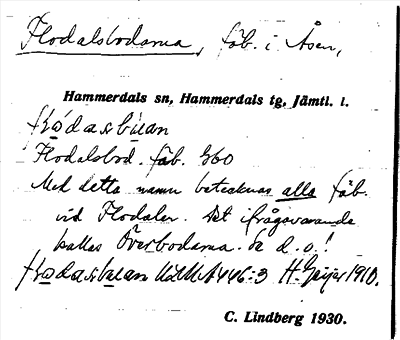 Flodalsbodarna, fäb. i Åsen,
Hammerdals sn, Hammerdals tg, Jämtl. l.
Flodalsbod. fäb. 360
Med detta namn betecknas alla fäb.
vid Flodalen. Det ifrågavarande
kallas Överbodarna. Se d. o.!
ULMA 446:3 H. Geijer 1910.
C. Lindberg 1930.